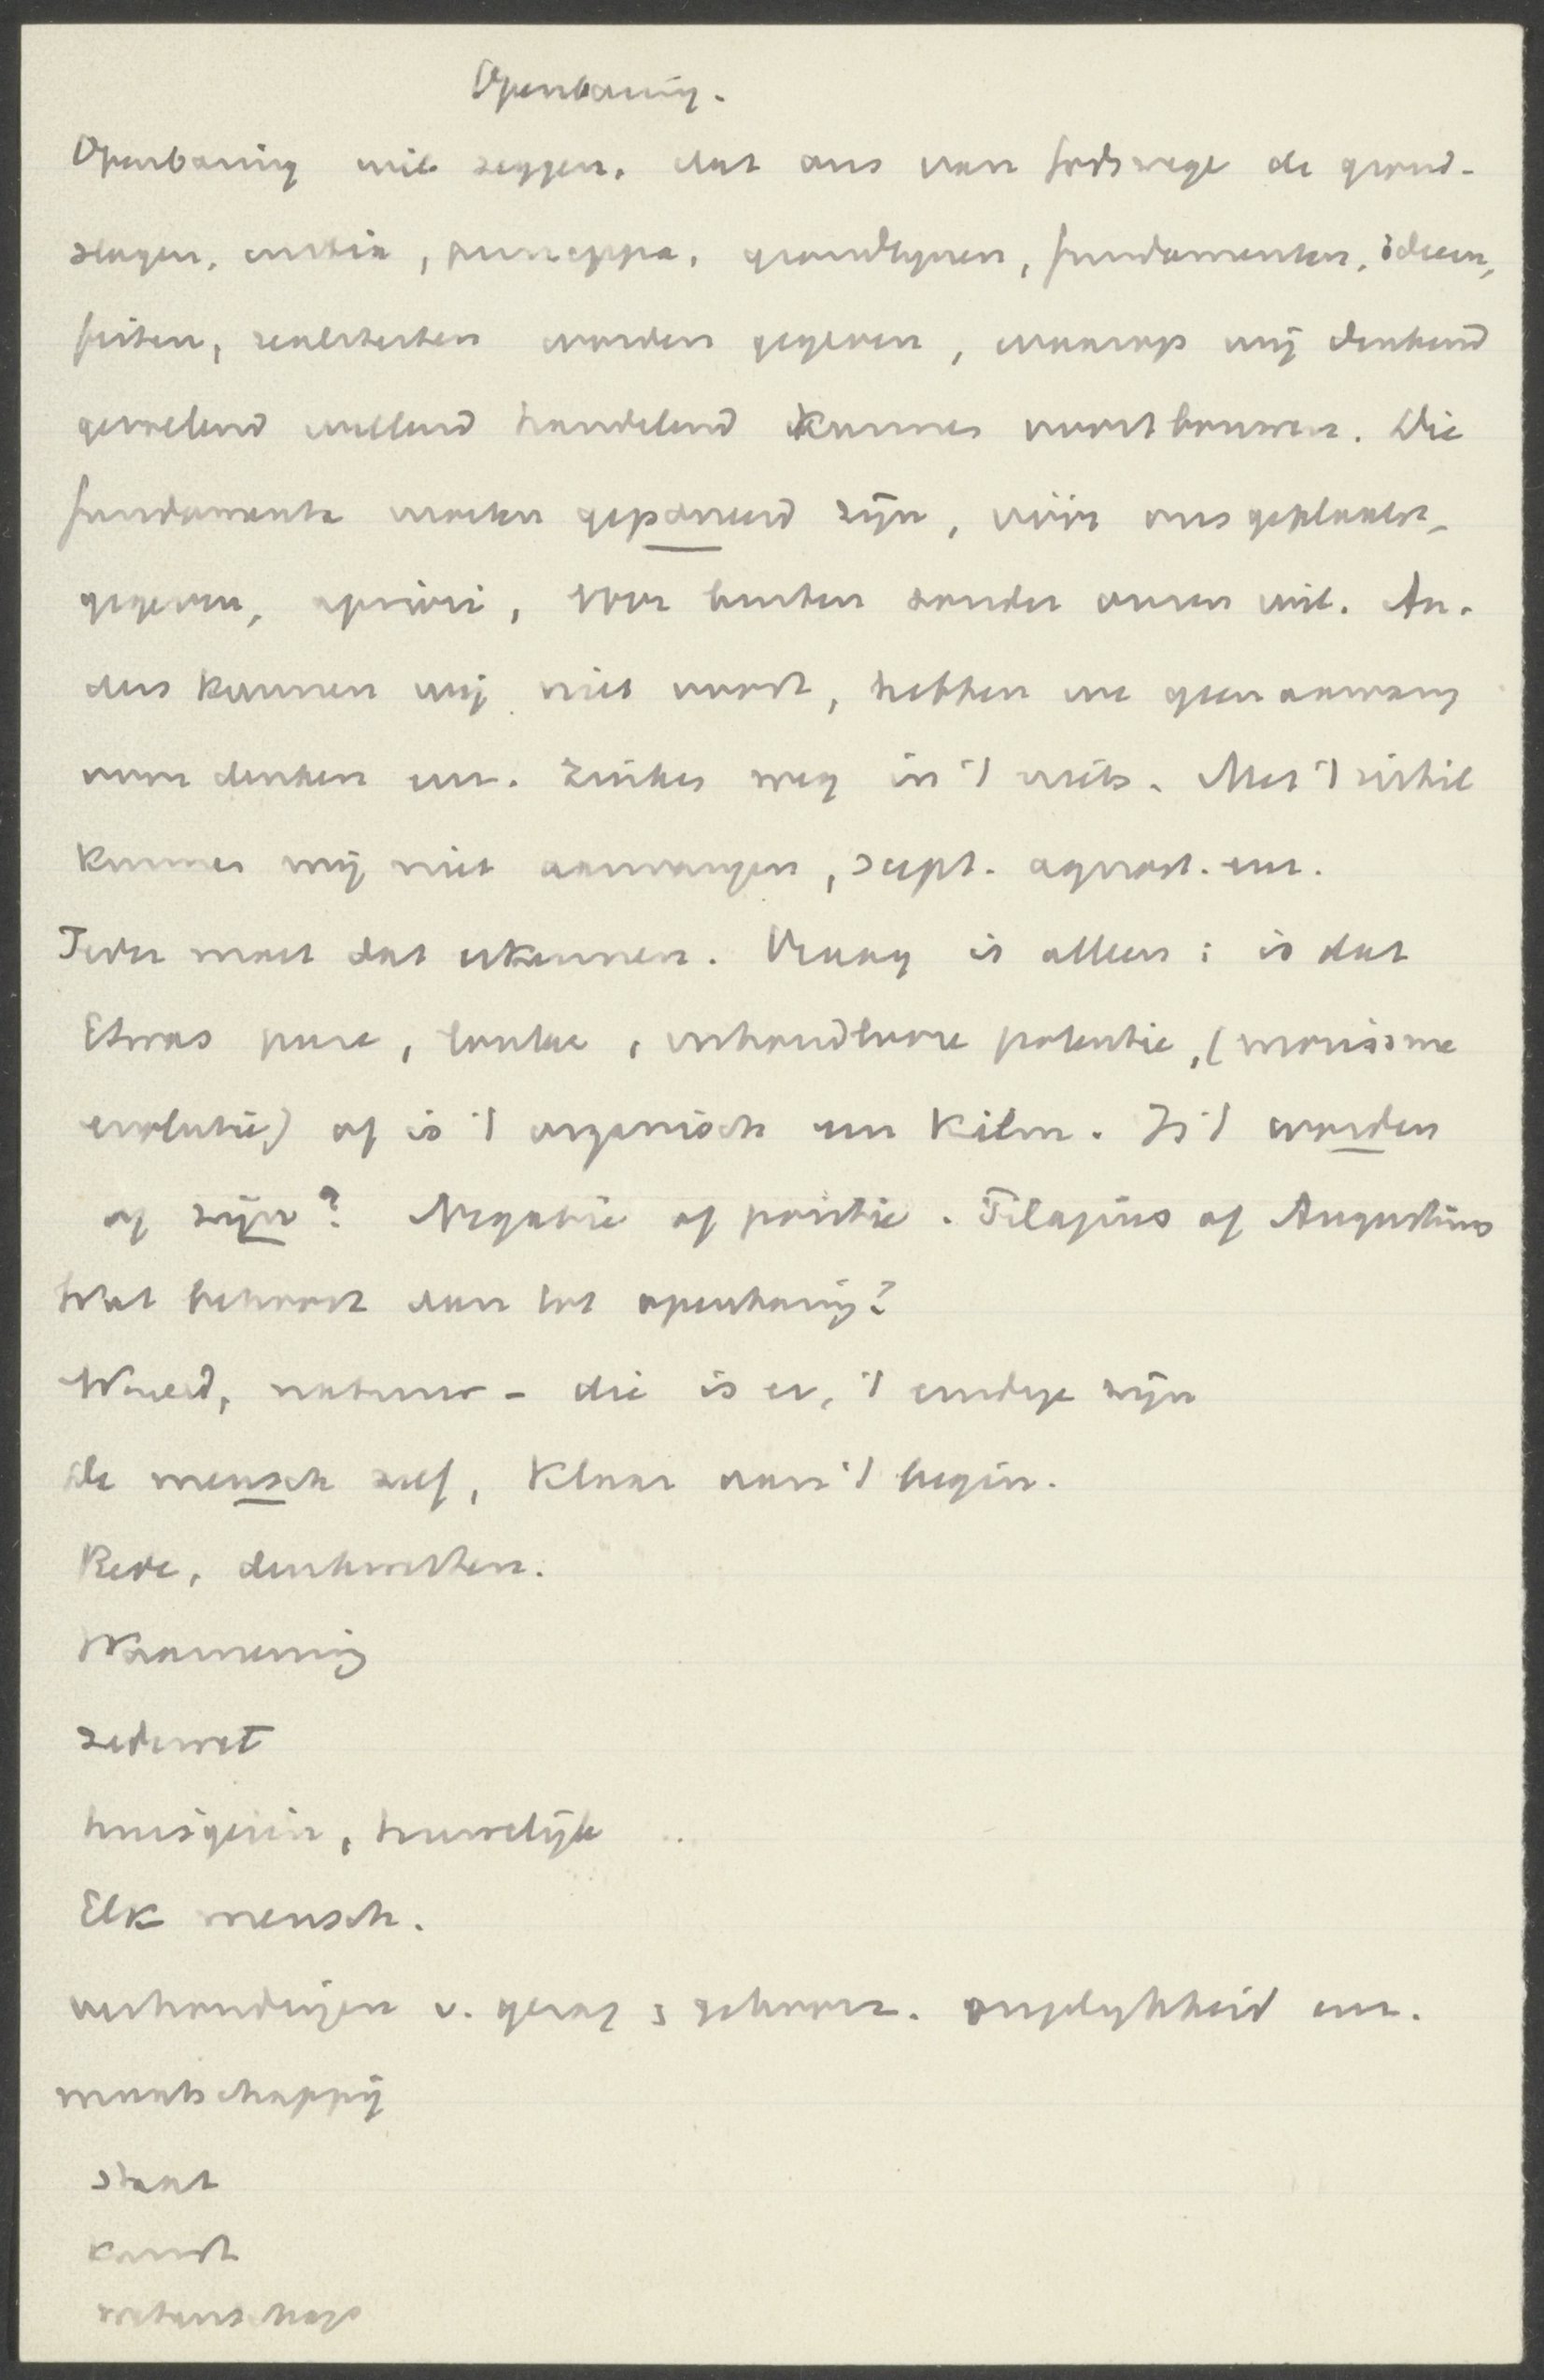 Openbaring.
Openbaring wil zeggen, dat ons van Godswege de grond-
slagen, initia, principia, grondlijnen, fundamenten, ideeen,
feiten, realiteiten worden gegeven, waarop wij denkend
gevoelend willend handelend kunnen voortbouwen. Die
fundamenten moeten geponeerd zijn, vóór ons geplaatst,
gegeven, apriori, voor buiten zonder onzen wil. An-
ders kunnen wij niet voort, hebben we geen aanvang
voor denken enz. Zinken weg in 't niets. Met 't nihil
kunnen wij niet aanvangen, scept. agnost. enz.
Ieder moet dat erkennen. Vraag is alleen: is dat
Etwas pure, loutere, potentie, (monisme
evolutie) of is 't organisch een Kiem. Is 't worden
of zijn? Negatie of positie. Pelagius of Augustinus
Wat behoort dan tot openbaring?
Wereld, natuur - die is er, 't eindige zijn
de mensch zelf, klaar van 't begin.
Rede, denkwetten.
Waarneming
zedewet
huisgezin, huwelijk
Elk mensch.
verhoudingen v. gezag & gehoorz. ongelijkheid enz.
maatschappij
staat
kunst
wetenschap